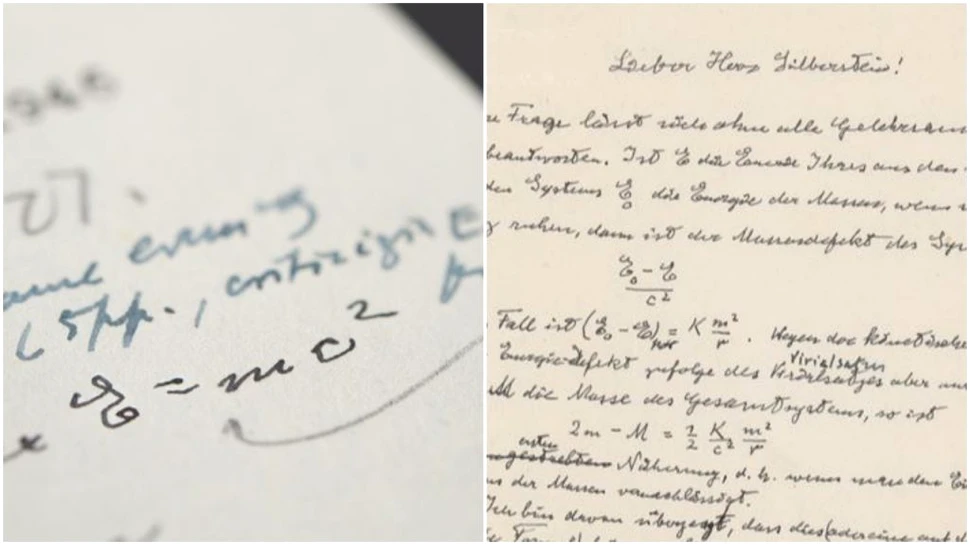 27.
evening
(5 pp., criticizing E
E = mc²
Lieber Herr Silberstein!
Frage lässt sich ohne alle Gelehrsam
beantworten. Ist E die Energie Ihres aus den
den Systems E₀ die Energie der Massen, wenn
ruhen, dann ist der Massendefekt des Sys
E₀ - E
c²
Fall ist (E₀ - E) = K m²/r. Wegen des kinetischen
Virialsatzes
Energiedefekt zufolge des Virialsatzes aber nur
M die Masse des Gesamtsystems, so ist
2m - M = 1/2 K/c² m²/r
ersten
Näherung, d. h. wenn man den Ei
der Massen vernachlässigt.
Ich bin davon überzeugt, dass dies (oder eine auf d
Formel